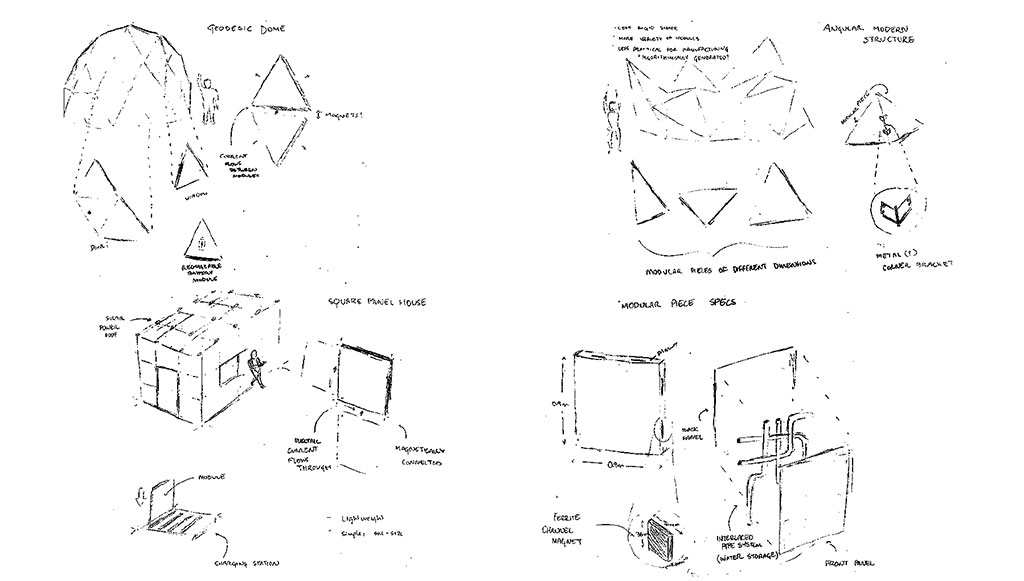 GEODESIC DOME
MAGNETS!
CURRENT
FLOWS
BETWEEN
MODULES
WINDOW
DOOR
RECHARGEABLE
BATTERY
MODULE
- LESS RIGID SHAPE
- MORE VARIETY OF MODULES
- LESS PRACTICAL FOR MANUFACTURING
*ALGORITHMICALLY GENERATED?
ANGULAR MODERN
STRUCTURE
MODULAR PIECE
MODULAR PIECES OF DIFFERENT DIMENSIONS
METAL(?)
CORNER BRACKET
SQUARE PANEL HOUSE
SOLAR
POWER
ROOF
ELECTRIC
CURRENT
FLOWS
THROUGH
MAGNETICALLY
CONNECTED
MODULE
CHARGING STATION
- LIGHTWEIGHT
- SIMPLE, ONE-SIZE
MODULAR PIECE SPECS
0.9m
0.9m
BACK
PANEL
FERRITE
CHANNEL
MAGNET
INTERLACED
PIPE SYSTEM
(WATER STORAGE)
FRONT PANEL